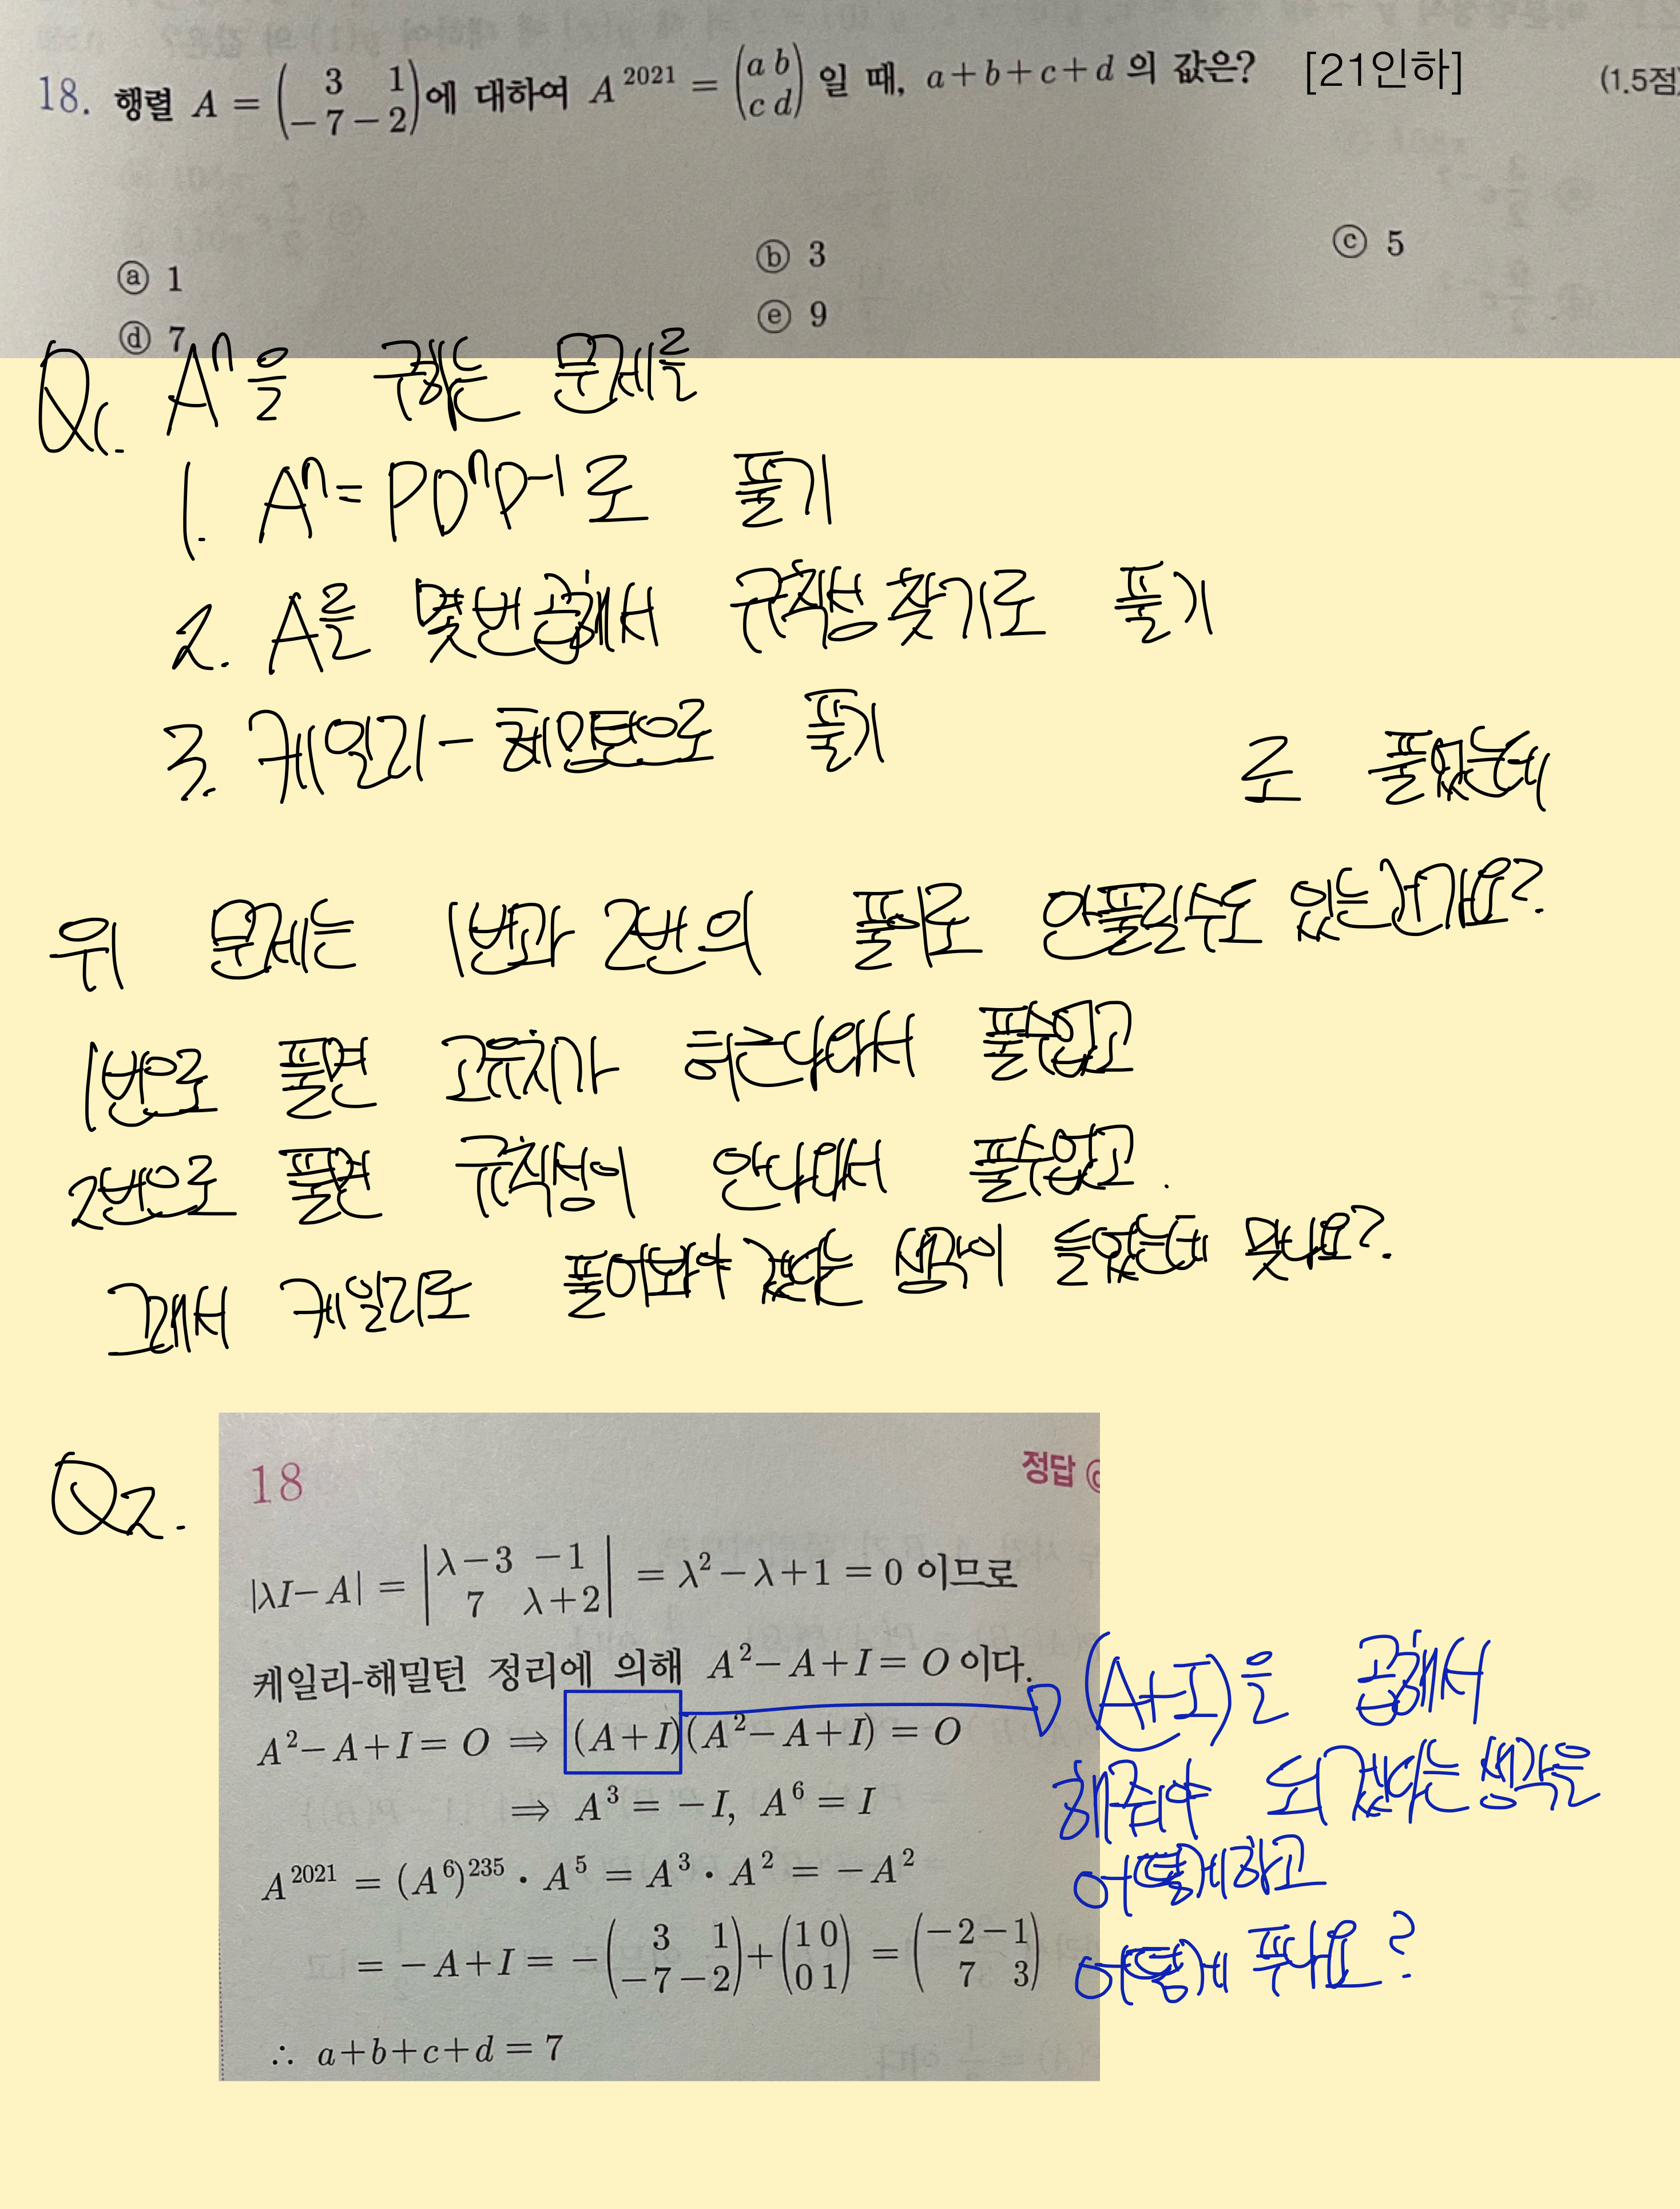 18. 행렬 A = ( 3 1 -7 -2 )에 대하여 A^2021 = ( a b c d ) 일 때, a+b+c+d 의 값은? [21인하] (1.5점)
ⓐ 1 ⓑ 3 ⓒ 5
ⓓ 7 ⓔ 9
Q1. A^n을 구하는 문제를
1. A^n = PD^nP-1로 풀기
2. A를 몇번곱해서 규칙성찾기로 풀기
3. 케일리-해밀턴으로 풀기 로 풀었는데
위 문제는 1번과 2번의 풀이로 안풀릴수도 있는건가요?
1번으로 풀면 고유치가 허근나와서 풀수없고
2번으로 풀면 규칙성이 안나와서 풀수없고.
그래서 케일리로 풀어봐야겠다는 생각이 들었는데 맞나요?
Q2.
18 정답 ⓓ
|λI-A| = | λ-3 -1 7 λ+2 | = λ²-λ+1 = 0 이므로
케일리-해밀턴 정리에 의해 A²-A+I = O 이다.
A²-A+I = O ⇒ (A+I)(A²-A+I) = O
⇒ A³ = -I, A⁶ = I
A^2021 = (A⁶)^235 · A⁵ = A³ · A² = -A²
= -A+I = -( 3 1 -7 -2 )+( 1 0 0 1 ) = ( -2 -1 7 3 )
∴ a+b+c+d = 7
(A+I)을 곱해서
해줘야 되겠다는 생각은
어떻게하고
어떻게 푸나요?